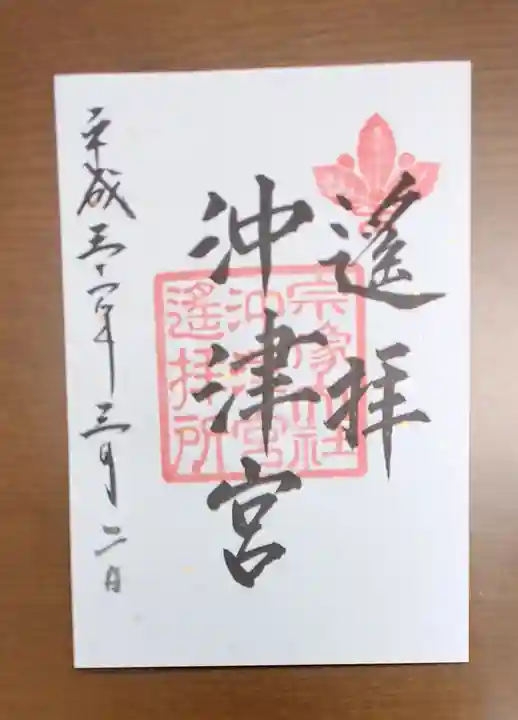 遥拝
沖津宮
宗像大社
沖津宮
遥拝所
平成三十一年三月二日